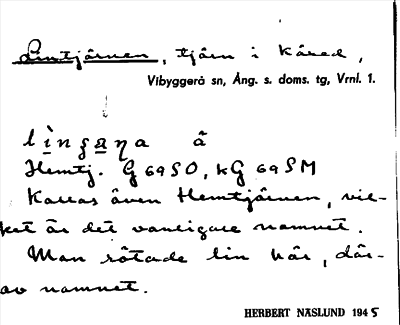 Lintjärnen, tjärn i Käred,
Vibyggerå sn, Ång. s. doms. tg, Vrnl. 1.
lìnšana â
Hemtj. G 69 SO, kG 69 SM
Kallas även Hemtjärnen, vil-
ket är det vanligare namnet.
Man rötade lin här, där-
av namnet.
HERBERT NÄSLUND 1945